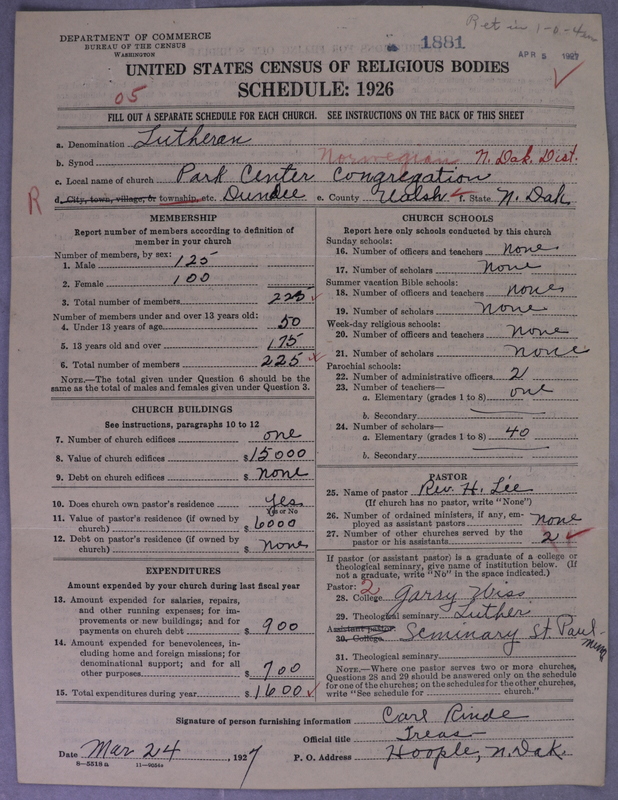 Ret in 1-0-4
DEPARTMENT OF COMMERCE
BUREAU OF THE CENSUS
WASHINGTON
1881
APR 5 1927
UNITED STATES CENSUS OF RELIGIOUS BODIES
SCHEDULE: 1926
05
FILL OUT A SEPARATE SCHEDULE FOR EACH CHURCH. SEE INSTRUCTIONS ON THE BACK OF THIS SHEET
a. Denomination Lutheran
b. Synod Norwegian N. Dak. Dist.
c. Local name of church Park Center Congregation
R d. City, town, village, or township, etc. Dundee e. County Walsh f. State N. Dak.
MEMBERSHIP
Report number of members according to definition of
member in your church
Number of members, by sex:
1. Male 125
2. Female 100
3. Total number of members 225
Number of members under and over 13 years old:
4. Under 13 years of age 50
5. 13 years old and over 175
6. Total number of members 225
NOTE.—The total given under Question 6 should be
same as the total of males and females given under Question 3.
CHURCH BUILDINGS
See instructions, paragraphs 10 to 12
7. Number of church edifices one
8. Value of church edifices $15000
9. Debt on church edifices $ none
10. Does church own pastor's residence yes
Yes or No
11. Value of pastor's residence (if owned by
church) $6000
12. Debt on pastor's residence (if owned by
church) $ none
EXPENDITURES
Amount expended by your church during last fiscal year
13. Amount expended for salaries, repairs,
and other running expenses; for im-
provements or new buildings; and for
payments on church debt $ 900
14. Amount expended for benevolences, in-
cluding home and foreign missions; for
denominational support; and for all
other purposes $ 700
15. Total expenditures during year $1600
CHURCH SCHOOLS
Report here only schools conducted by this church
Sunday schools:
16. Number of officers and teachers none
17. Number of scholars none
Summer vacation Bible schools:
18. Number of officers and teachers none
19. Number of scholars none
Week-day religious schools:
20. Number of officers and teachers none
21. Number of scholars none
Parochial schools:
22. Number of administrative officers 2
23. Number of teachers—
a. Elementary (grades 1 to 8) one
b. Secondary
24. Number of scholars—
a. Elementary (grades 1 to 8) 40
b. Secondary
PASTOR
25. Name of pastor Rev. H. Lee
(If church has no pastor, write "None")
26. Number of ordained ministers, if any, em-
ployed as assistant pastors none
27. Number of other churches served by the
pastor or his assistants 2
If pastor (or assistant pastor) is a graduate of a college or
theological seminary, give name of institution below. (If
not a graduate, write "No" in the space indicated.)
Pastor: 2
28. College Garry Wiss
29. Theological seminary Luther
Assistant pastor
30. College Seminary St. Paul
Minn
31. Theological seminary
NOTE.—Where one pastor serves two or more churches,
Questions 28 and 29 should be answered only on the schedule
for one of the churches; on the schedules for the other churches,
write "See schedule for church."
Signature of person furnishing information Carl Rinde
Official title Treas
Date Mar 24, 1927 P. O. Address Hoople, N. Dak.
8—5518 a 11—9054